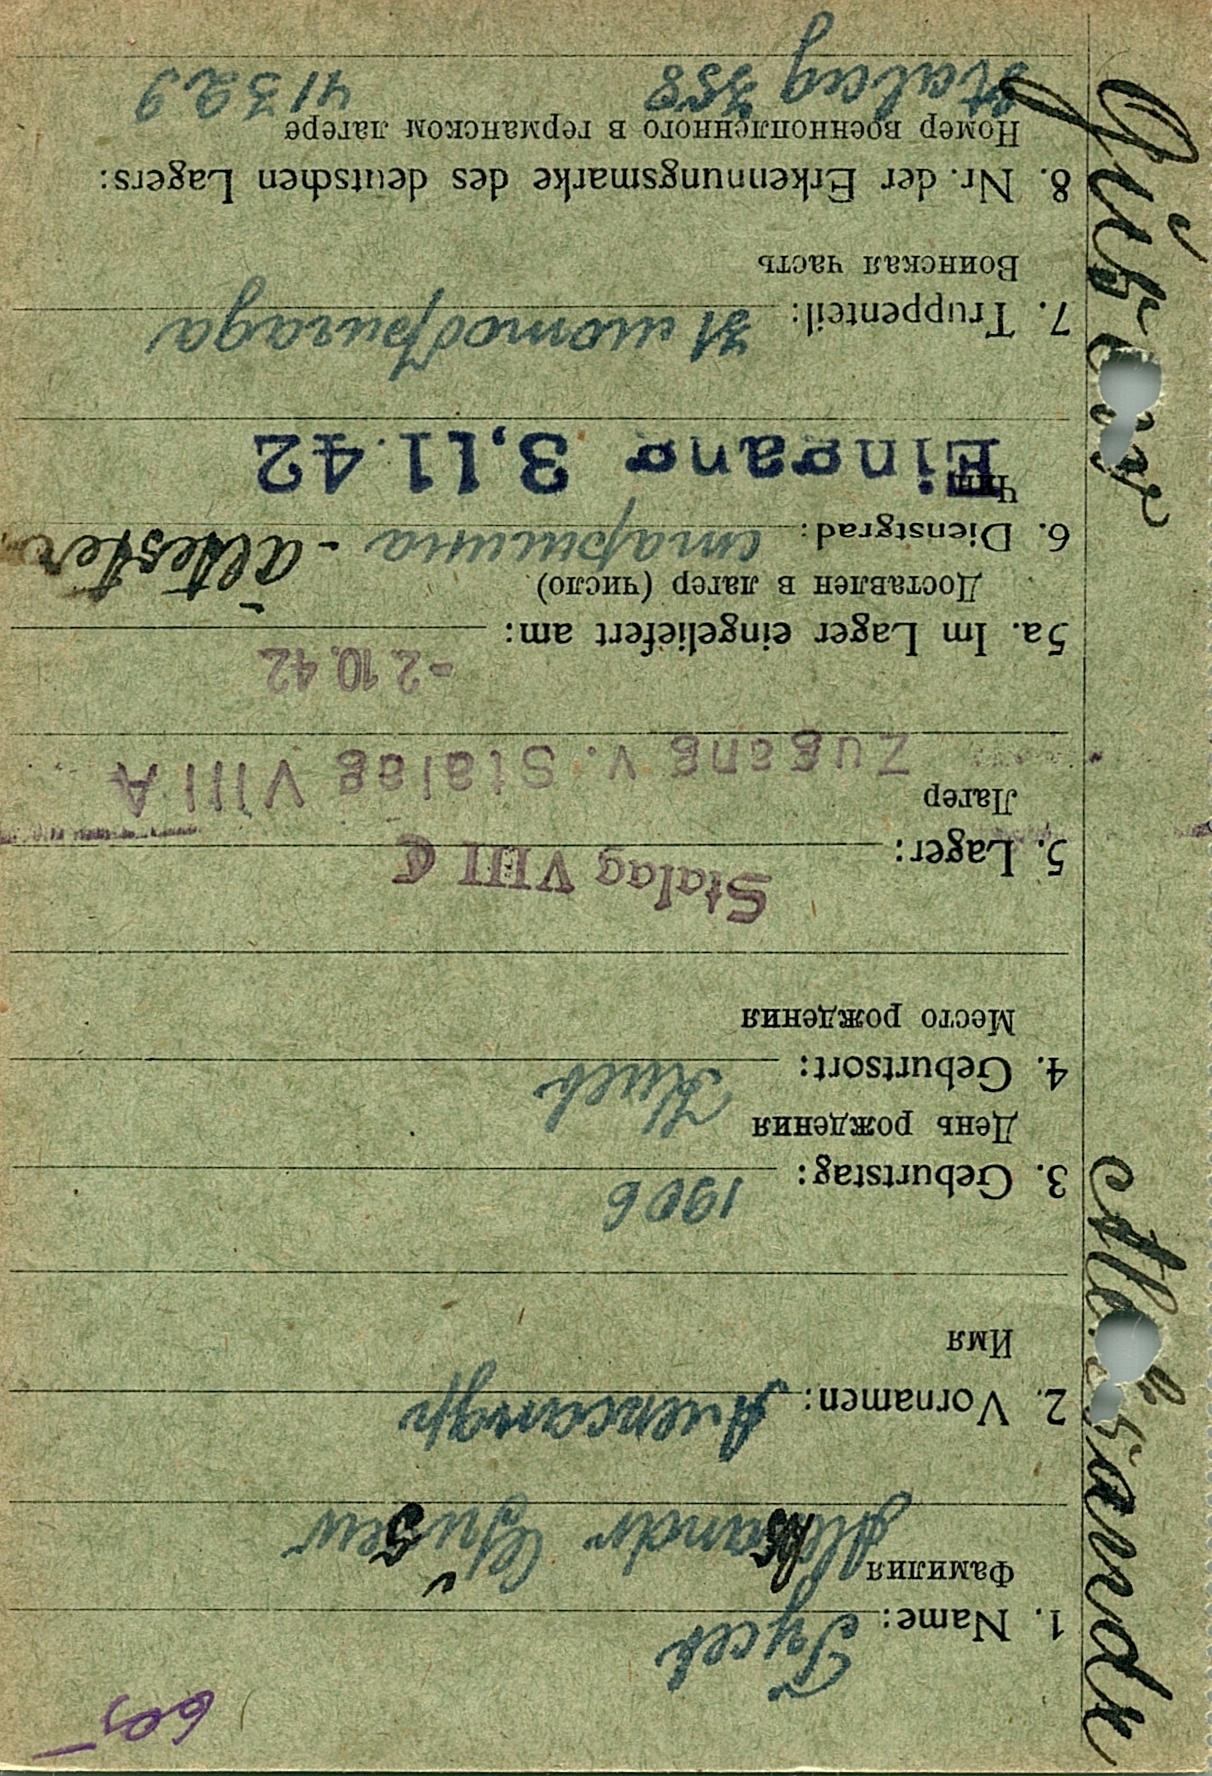 60
1. Name: Гусев
Фамилия
Aleksandr Gúsew
2. Vornamen: Александр
Имя
3. Geburtstag: 1906
День рождения
4. Geburtsort: Киев
Место рождения
Stalag VIII C
5. Lager:
Лагер
Zugang v. Stalag VIII A
-2.10.42
5a. Im Lager eingeliefert am:
Доставлен в лагер (число)
6. Dienstgrad: старшина - ältester
Чин
Eingang 3.11.42
7. Truppenteil: 31 мотобригада
Воинская часть
8. Nr. der Erkennungsmarke des deutschen Lagers:
Номер военнопленного в германском лагере
Stalag 358 41329
Aleksandr